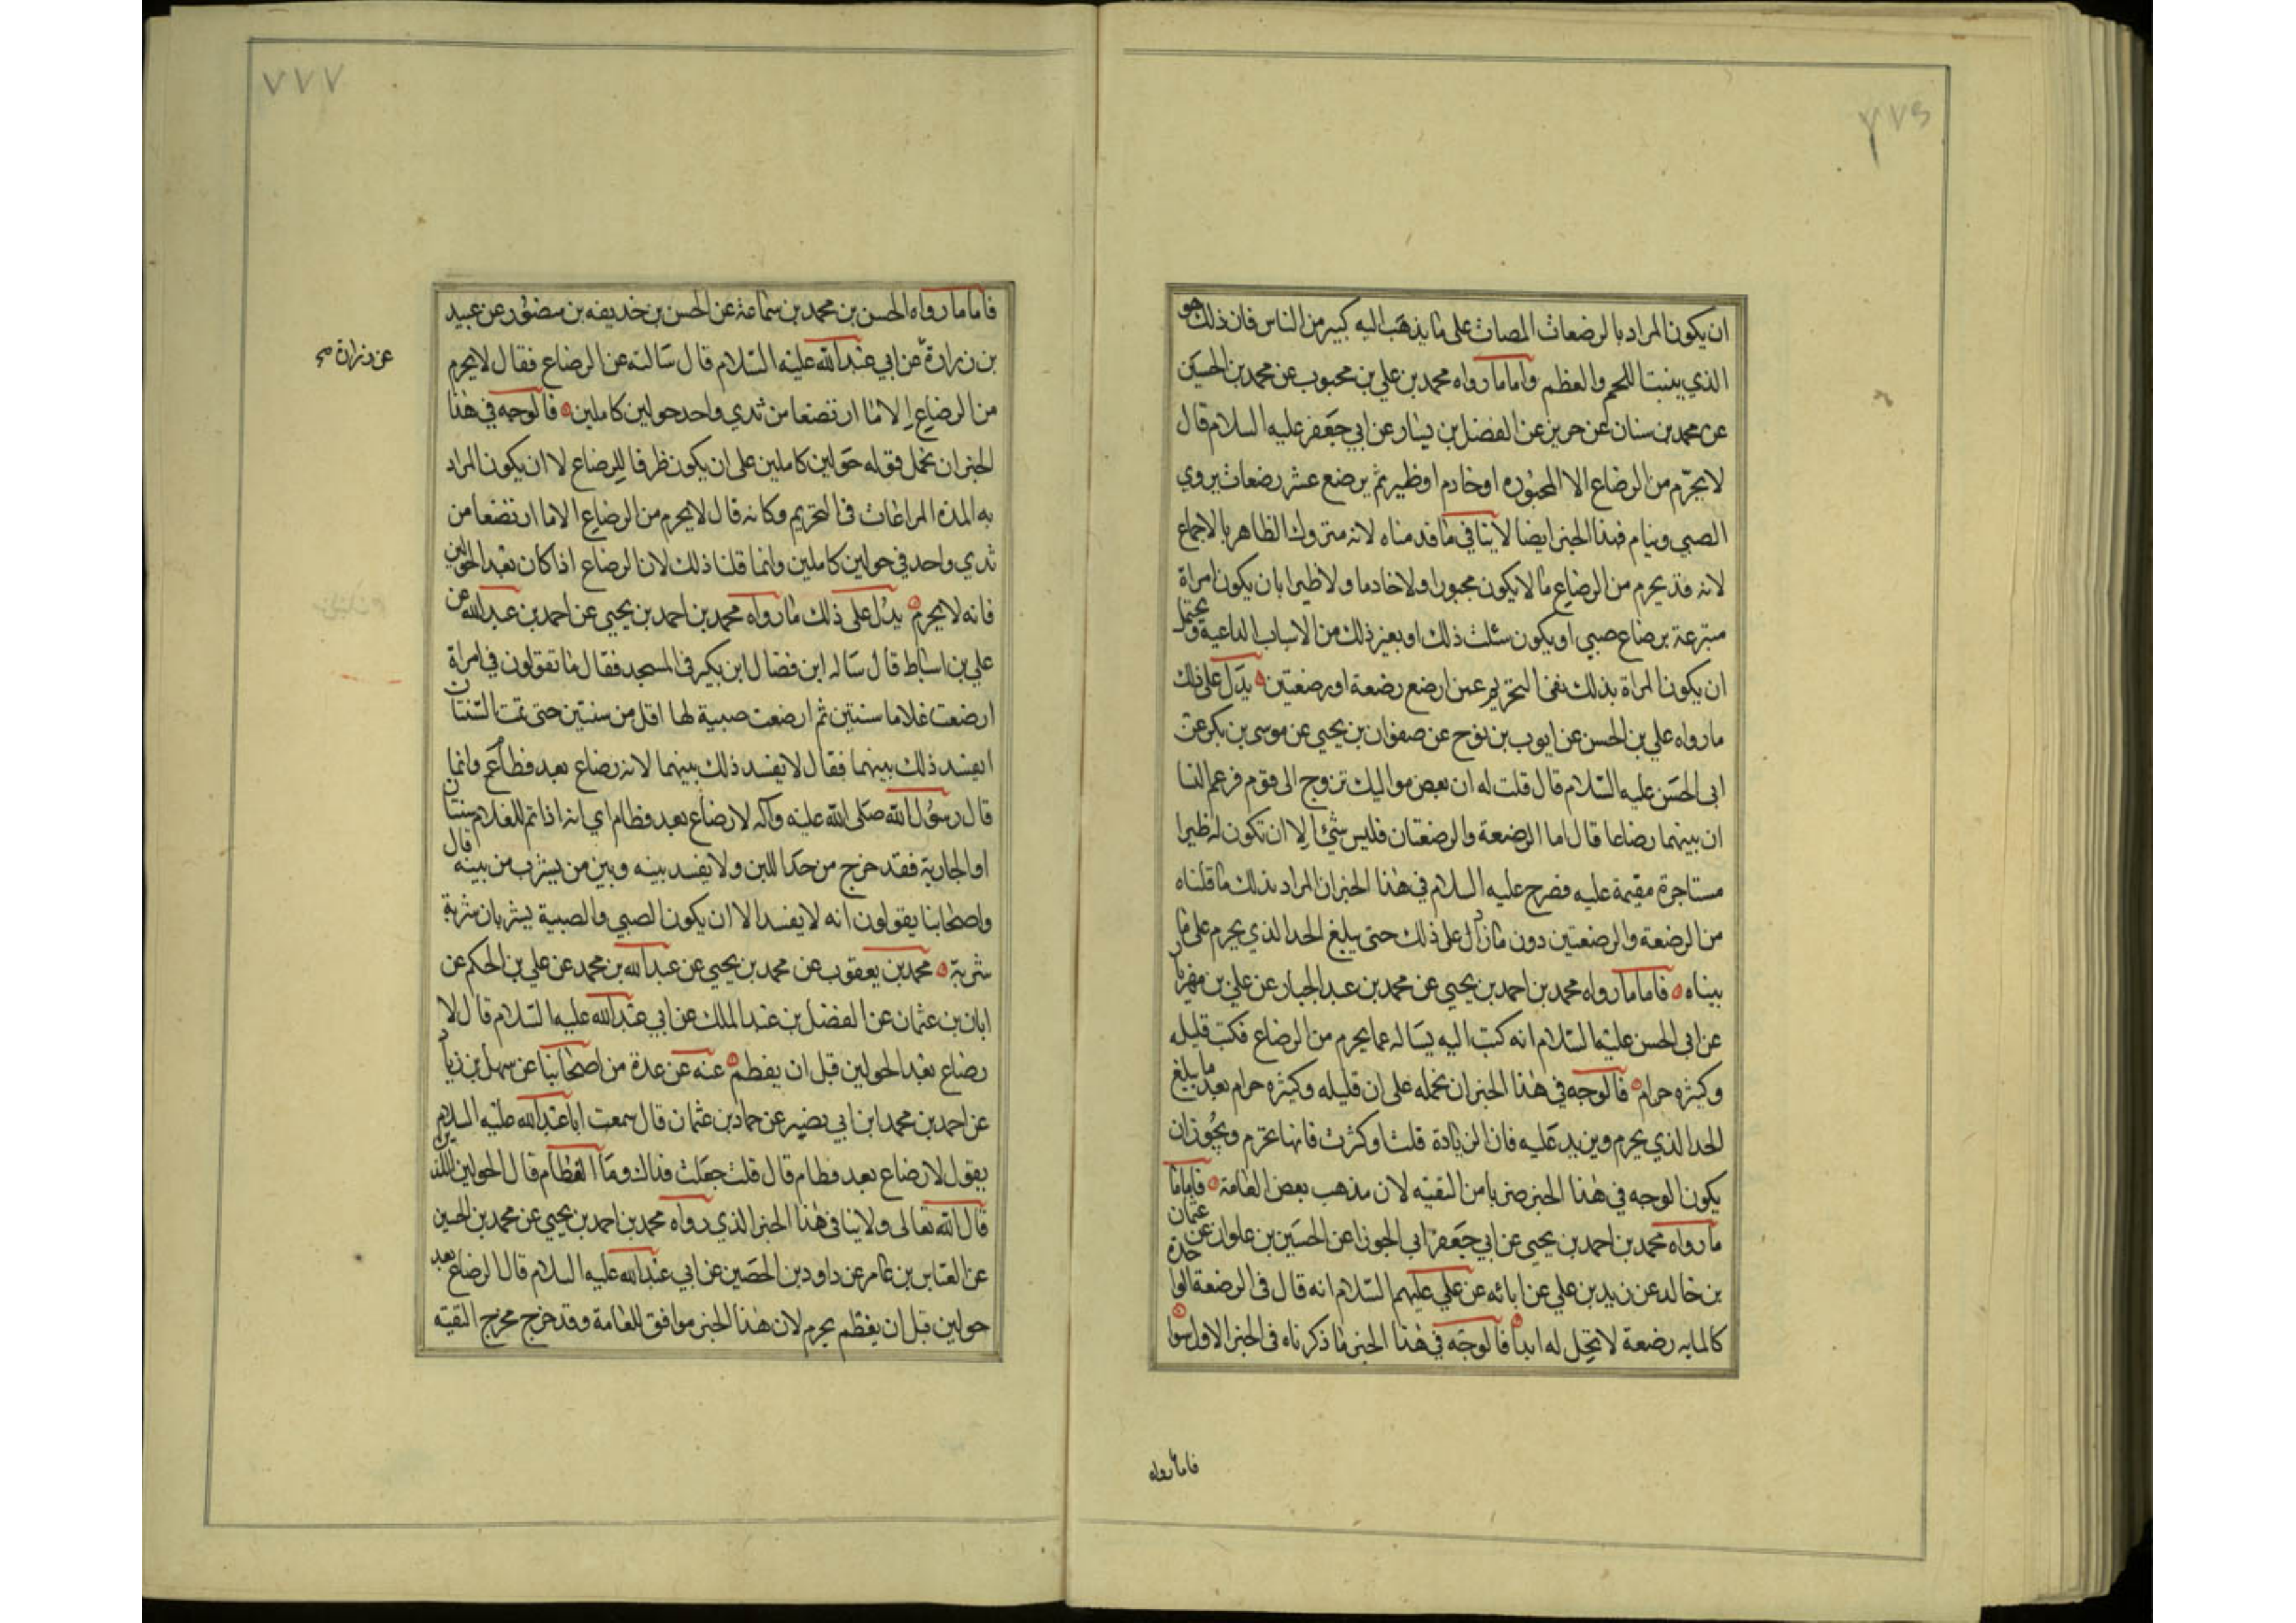 ٧٧٦
ان يكون المراد بالرضعات المصات على ما يذهب اليه كبير من الناس فان ذلك هو
الذي ينبت اللحم والعظم واما ما رواه محمد بن علي بن محبوب عن محمد بن الحسين
عن محمد بن سنان عن حريز عن الفضل بن يسار عن ابي جعفر عليه السلام قال
لا يحرم من الرضاع الا المجبوره او خادم او ظير ثم يرضع عشر رضعات يروي
الصبي وينام فهذا الخبر ايضا لا ينافي ما قدمناه لانه متروك الظاهر بالاجماع
لانه قد يحرم من الرضاع ما لا يكون مجبورا ولا خادما ولا ظيرا بان يكون امراة
متبرعة برضاع صبي او يكون سئلت ذلك او بغير ذلك من الاسباب الداعية ويحتمل
ان يكون المراة بذلك نفي التحريم عمن ارضع رضعة او رضعتين يدل على ذلك
ما رواه علي بن الحسن عن ايوب بن نوح عن صفوان بن يحيي عن موسى بن بكر عن
ابى الحسن عليه السلام قال قلت له ان بعض مواليك تزوج الى قوم فزعم النسا
ان بينهما رضاعا قال اما الرضعة والرضعتان فليس شئ الا ان تكون له ظيرا
مستاجرة مقيمة عليه فصرح عليه السلام في هذا الخبر ان المراد بذلك ما قلناه
من الرضعة والرضعتين دون ما زاد على ذلك حتى يبلغ الحد الذي يحرم على ما
بيناه فاما ما رواه محمد بن احمد بن يحيي عن محمد بن عبد الجبار عن علي بن مهزيار
عن ابى الحسن عليه السلام انه كتب اليه يساله عما يحرم من الرضاع فكتب قليله
وكثيره حرام فالوجه في هذا الخبر ان نحمله على ان قليله وكثيره حرام بعد ما يبلغ
الحد الذي يحرم ويزيد عليه فان الزيادة قلت او كثرت فانها تحرم ويجوز ان
يكون الوجه في هذا الخبر ضربا من التقيه لان مذهب بعض العامة فاما ما
ما رواه محمد بن احمد بن يحيي عن ابي جعفر ابي الجوزا عن الحسين بن علوان عن عثمان
بن خالد عن زيد بن علي عن ابائه عن علي عليهم السلام انه قال فى الرضعة الواحدة
كالمايه رضعة لا تحل له ابدا فالوجه في هذا الخبر ما ذكرناه فى الخبر الاول سوا
فاما ما رواه
٧٧٧
فاما ما رواه الحسن بن محمد بن سماعة عن الحسن بن حذيفه بن منصور عن عبيد
بن زرارة عن ابي عبد الله عليه السلام قال سالته عن الرضاع فقال لا يحرم
عن زرارة صح
من الرضاع الا ما ارتضعا من ثدي واحد حولين كاملين فالوجه في هذا
الخبر ان نحمل قوله حولين كاملين على ان يكون ظرفا للرضاع لا ان يكون المراد
به المدة المراعات فى التحريم وكانه قال لا يحرم من الرضاع الا ما ارتضعا من
ثدي واحد في حولين كاملين وانما قلنا ذلك لان الرضاع اذا كان بعد الحولين
فانه لا يحرم يدل على ذلك ما رواه محمد بن احمد بن يحيي عن احمد بن عبد الله عن
علي بن اسباط قال ساله ابن فضال ابن بكير فى المسجد فقال ما تقولون في امراة
ارضعت غلاما سنتين ثم ارضعت صبية لها اقل من سنتين حتى تمت السنتان
ايفسد ذلك بينهما فقال لا يفسد ذلك بينهما لانه رضاع بعد فطام وانما
قال رسول الله صلى الله عليه وآله لا رضاع بعد فطام اي انه اذا تم للغلام سنتان
او الجارية فقد خرج من حد اللبن ولا يفسد بينه وبين من يشرب من بينه قال
واصحابنا يقولون انه لا يفسد الا ان يكون الصبي والصبية يشربان شربة
شربة محمد بن يعقوب عن محمد بن يحيي عن عبد الله بن محمد عن علي بن الحكم عن
ابان بن عثمان عن الفضل بن عبد الملك عن ابي عبد الله عليه السلام قال لا
رضاع بعد الحولين قبل ان يفطم عنه عن عدة من اصحابنا عن سهل بن زياد
عن احمد بن محمد ابن ابي نصير عن حماد بن عثمان قال سمعت ابا عبد الله عليه السلام
يقول لا رضاع بعد فطام قال قلت جعلت فداك وما الفطام قال الحولين اللذين
قال الله تعالى ولا ينافى هذا الخبر الذي رواه محمد بن احمد بن يحيي عن محمد بن الحسين
عن العباس بن عامر عن داود بن الحصين عن ابي عبد الله عليه السلام قال الرضاع بعد
حولين قبل ان يفطم يحرم لان هذا الخبر موافق للعامة وقد خرج مخرج التقيه